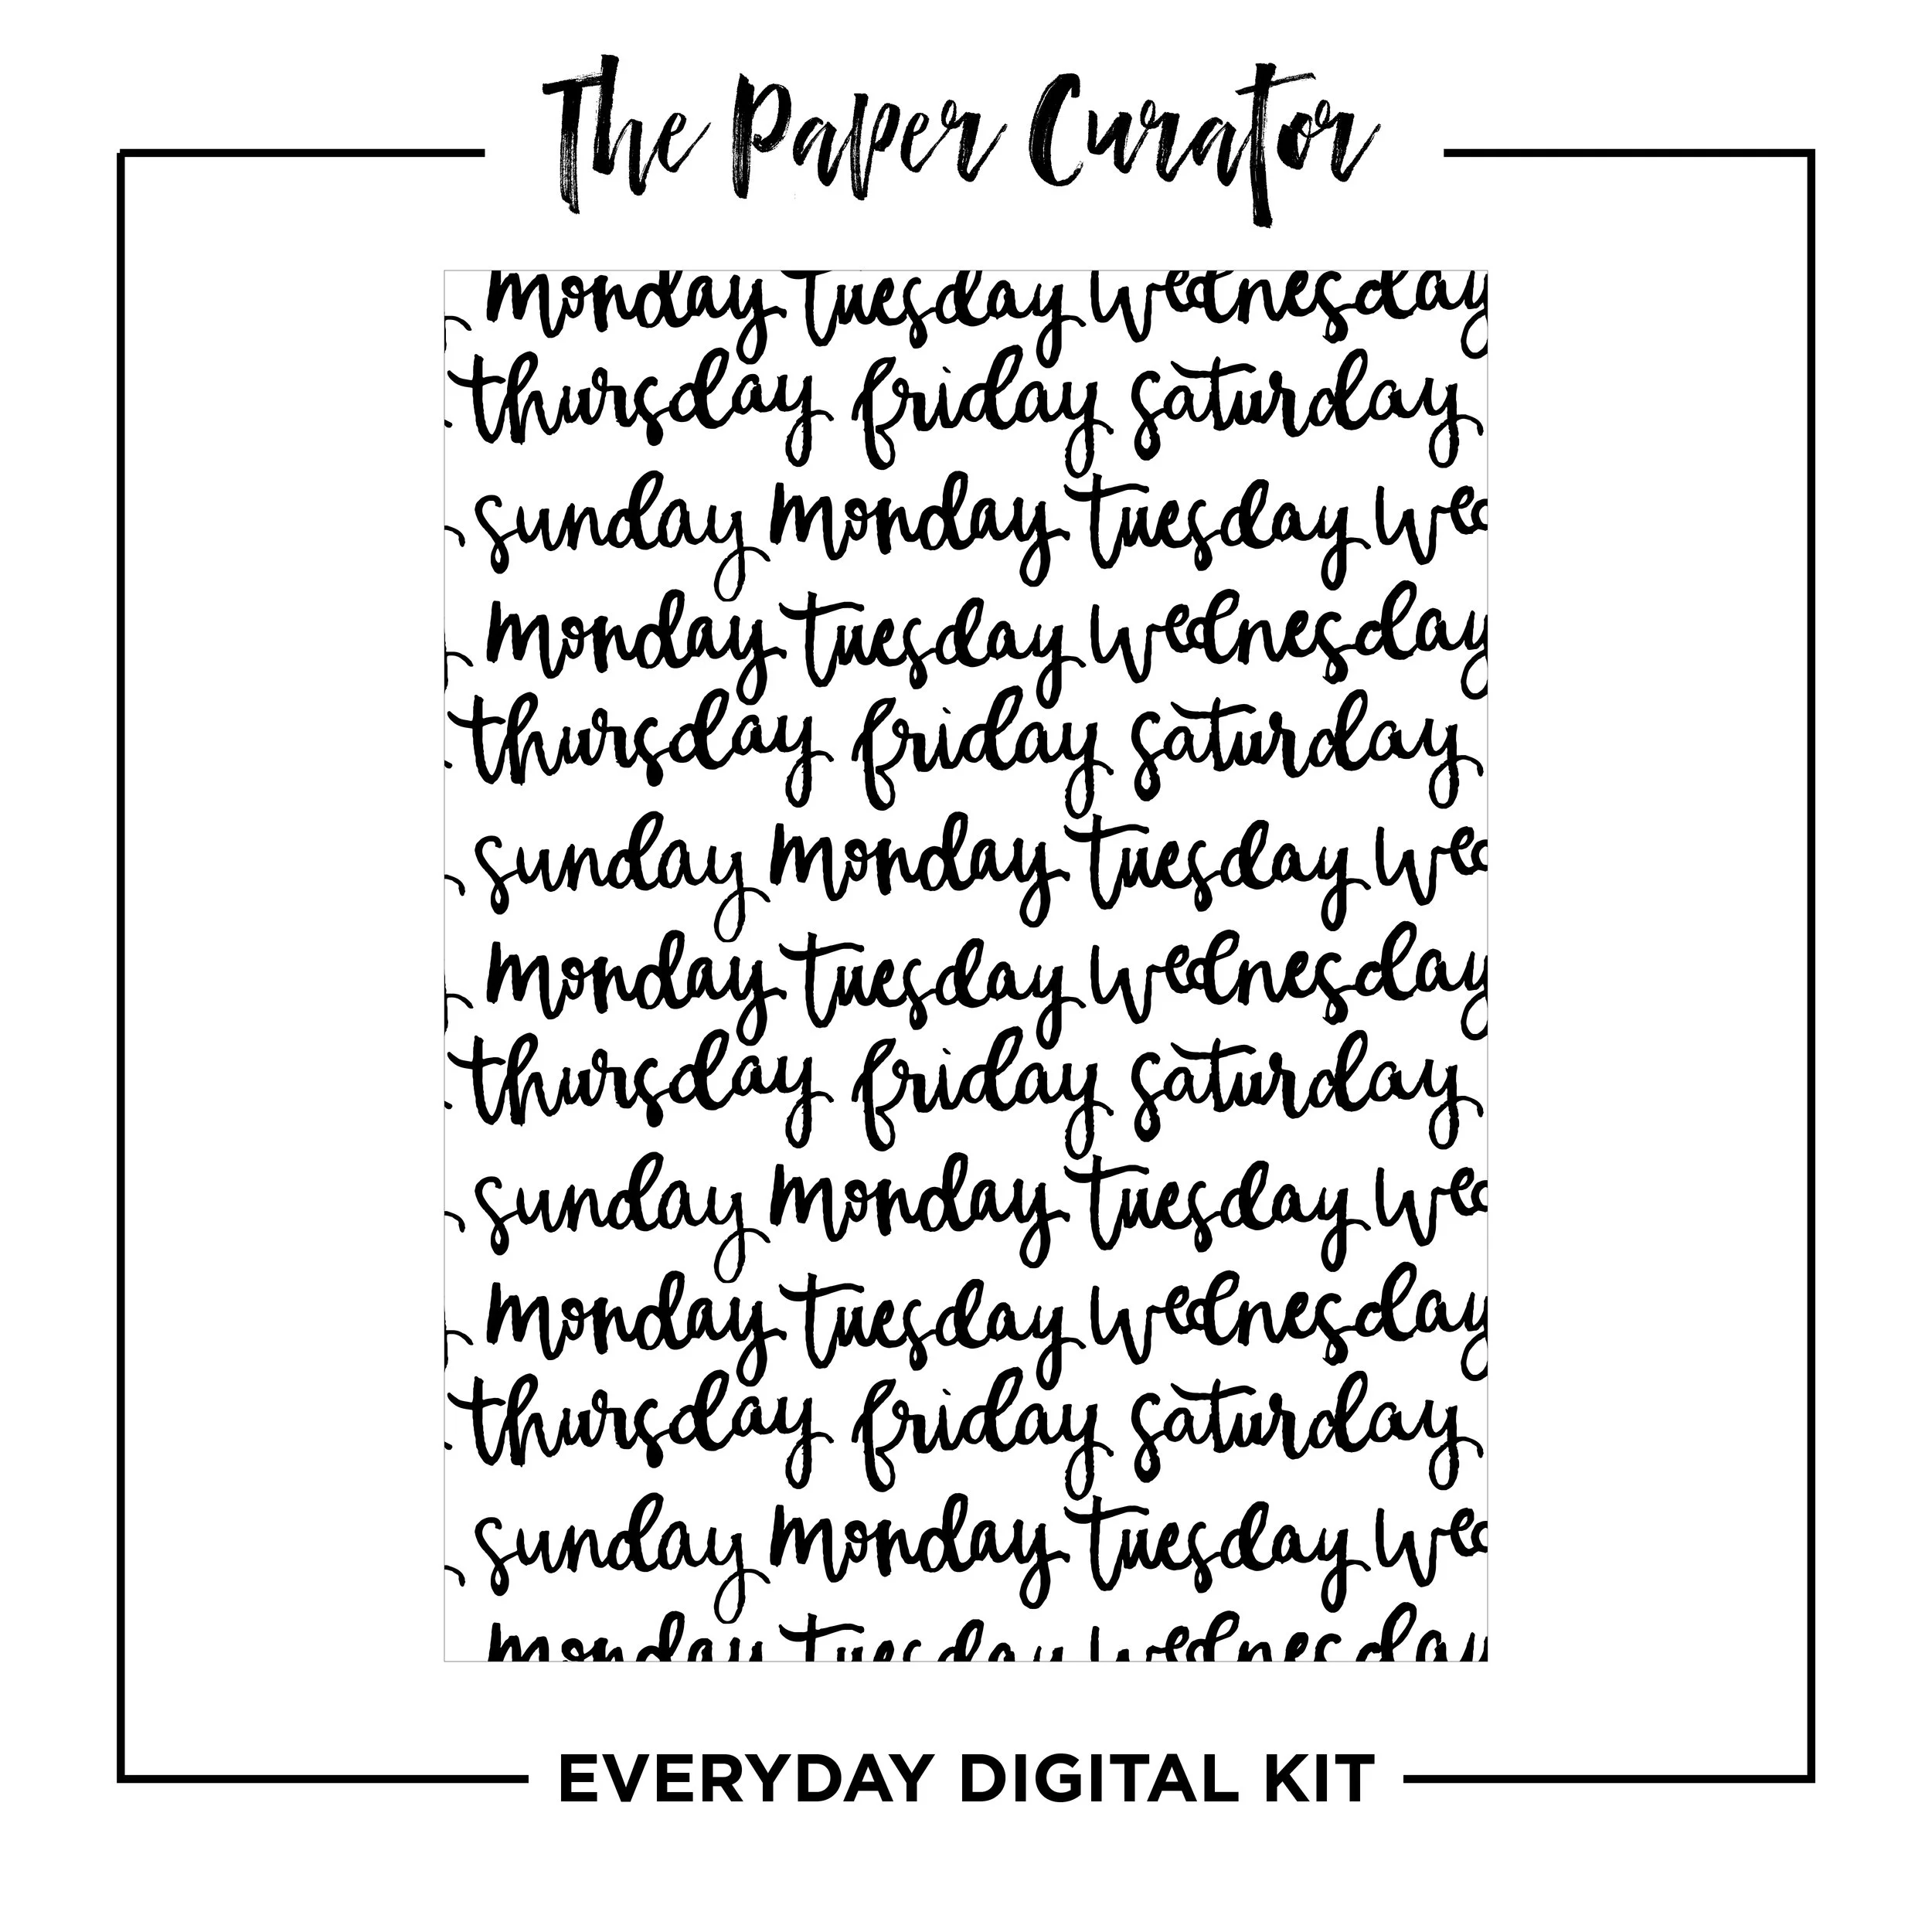 The Paper Curator
monday tuesday wednesday
thursday friday saturday
sunday monday tuesday wed
monday tuesday wednesday
thursday friday saturday
sunday monday tuesday wed
monday tuesday wednesday
thursday friday saturday
sunday monday tuesday wed
monday tuesday wednesday
thursday friday saturday
sunday monday tuesday wed
monday tuesday wednesday
EVERYDAY DIGITAL KIT